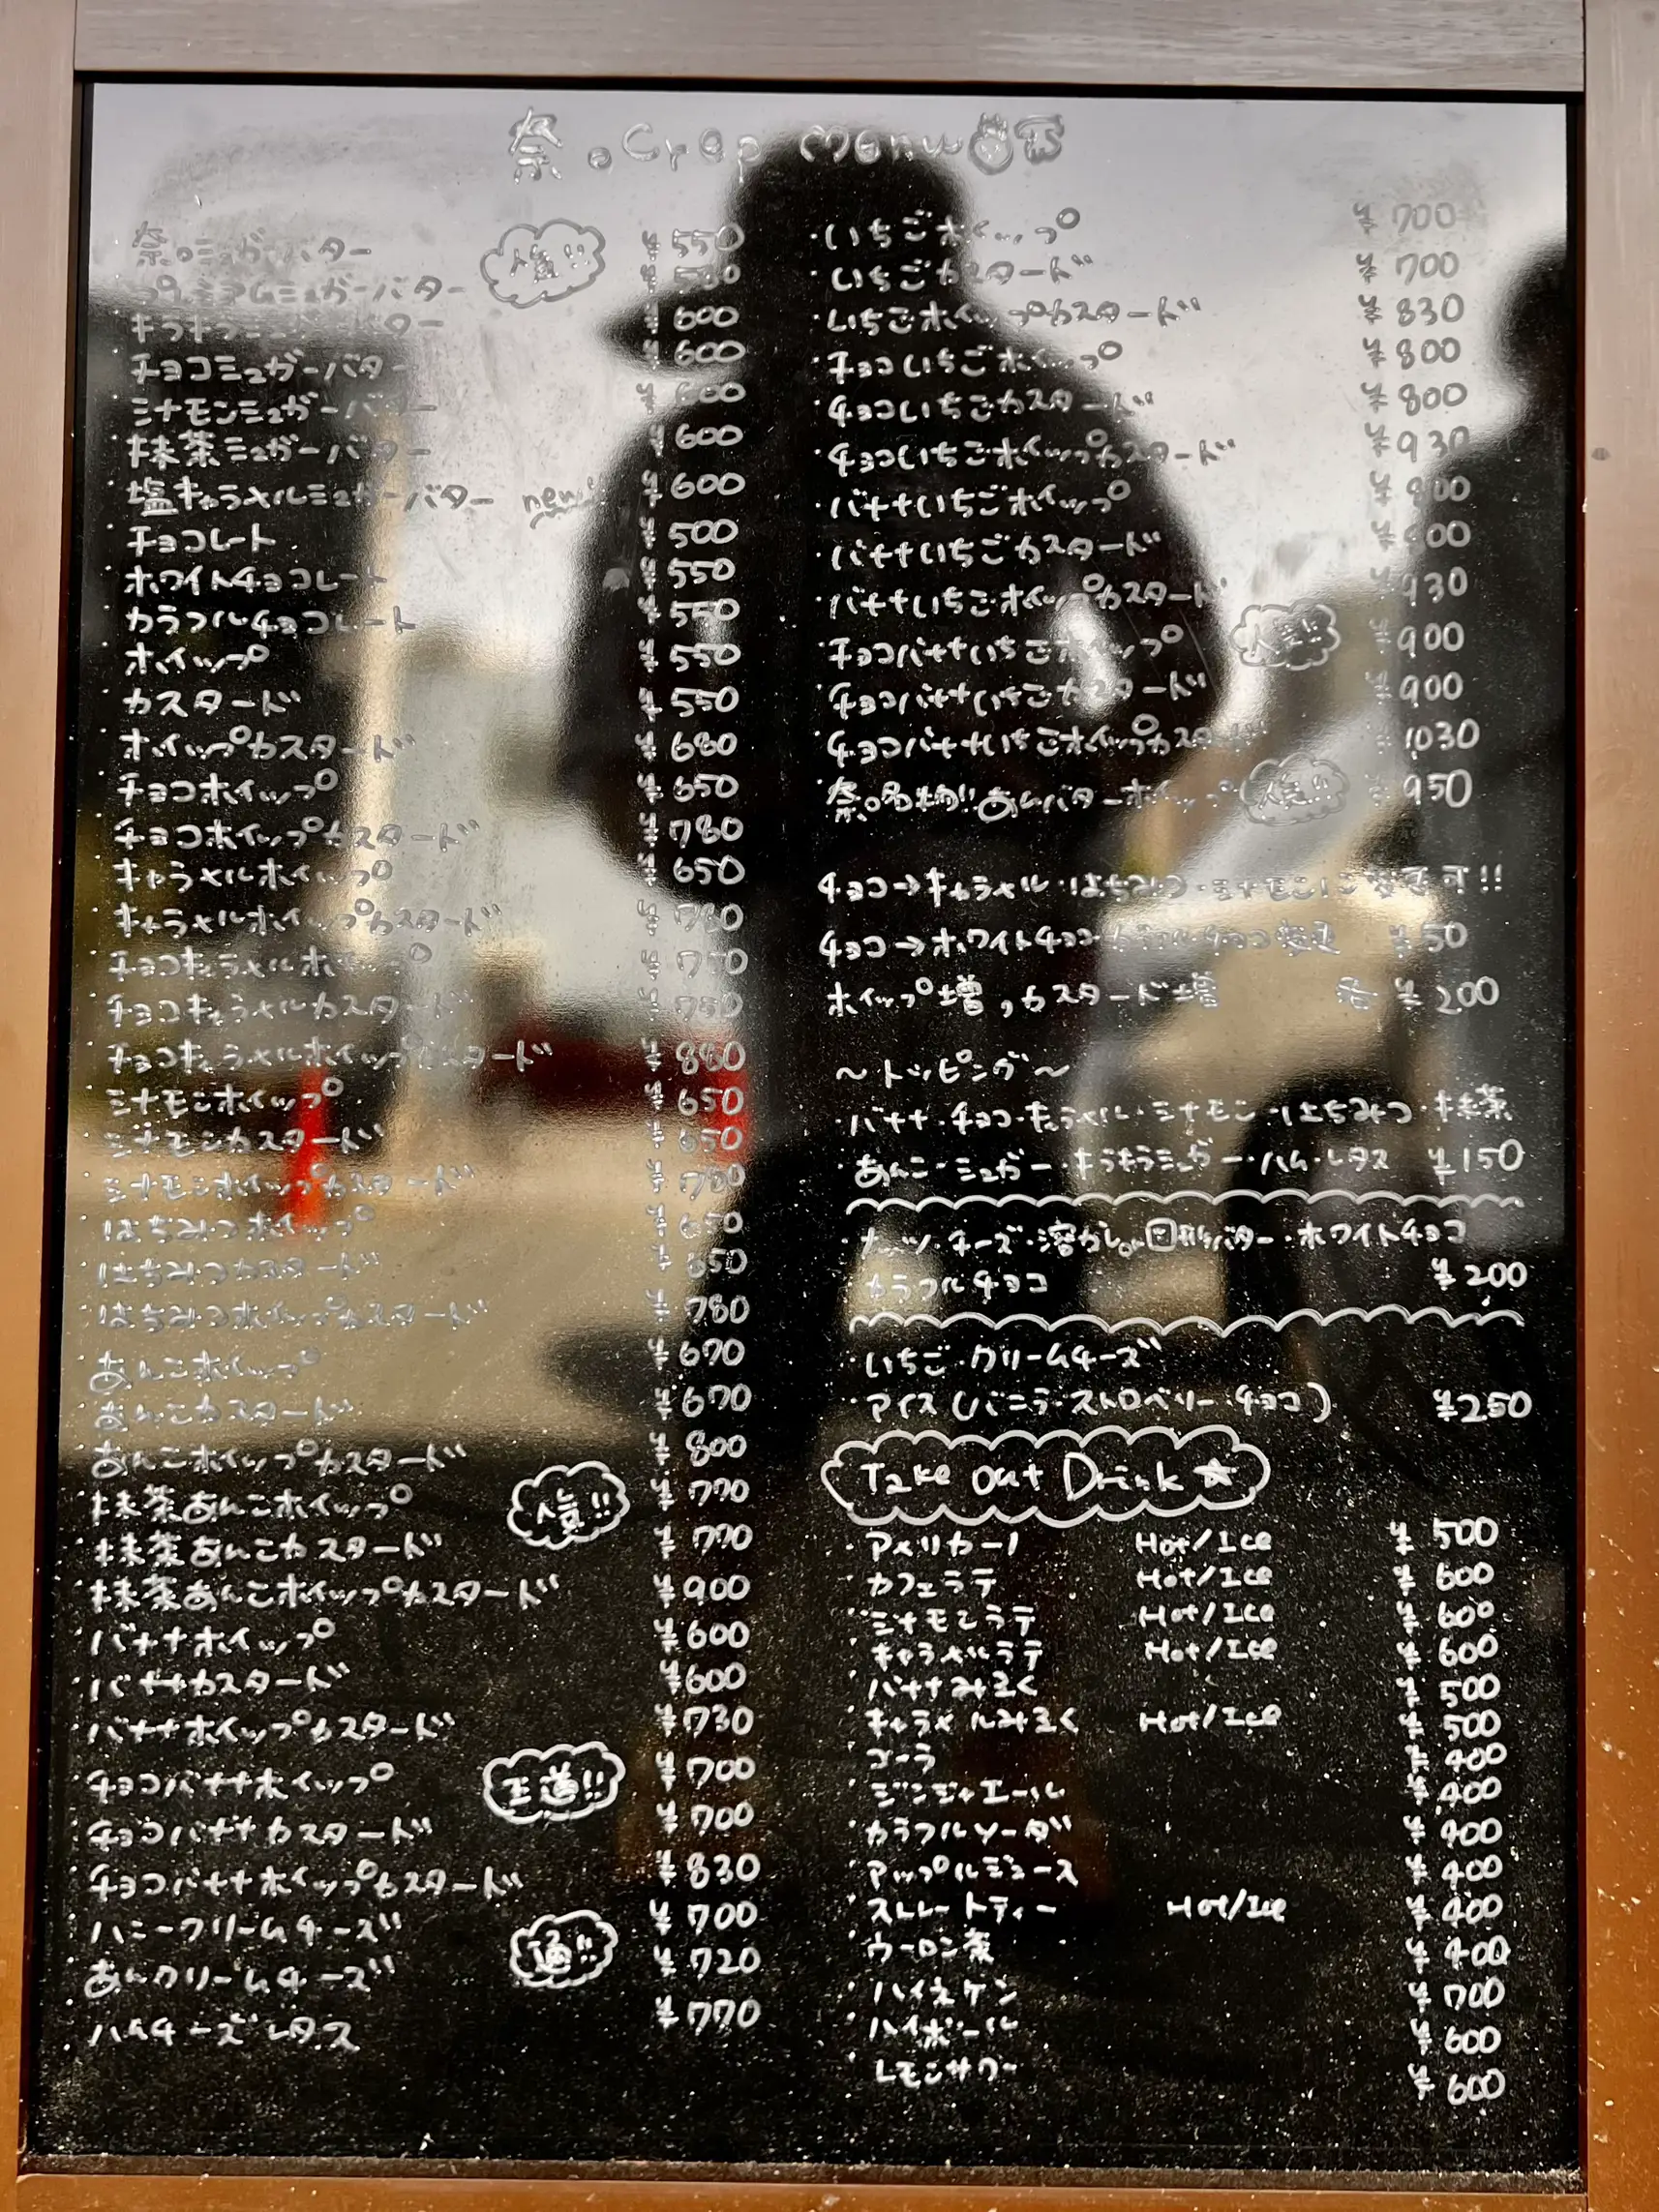 奈。Crep Menu
奈。シュガーバター 人気!! ¥550
プレミアムシュガーバター
キラキラシュガーバター ¥600
チョコシュガーバター ¥600
シナモンシュガーバター ¥600
抹茶シュガーバター ¥600
塩キャラメルシュガーバター new!! ¥600
チョコレート ¥500
ホワイトチョコレート ¥550
カラフルチョコレート ¥550
ホイップ ¥550
カスタード ¥550
ホイップカスタード ¥680
チョコホイップ ¥650
チョコホイップカスタード ¥780
キャラメルホイップ ¥650
キャラメルホイップカスタード ¥780
チョコキャラメルホイップ ¥750
チョコキャラメルカスタード ¥750
チョコキャラメルホイップカスタード ¥880
シナモンホイップ ¥650
シナモンカスタード ¥650
シナモンホイップカスタード ¥780
はちみつホイップ ¥650
はちみつカスタード ¥650
はちみつホイップカスタード ¥780
あんこホイップ ¥670
あんこカスタード ¥670
あんこホイップカスタード ¥800
抹茶あんこホイップ 人気!! ¥770
抹茶あんこカスタード ¥770
抹茶あんこホイップカスタード ¥900
バナナホイップ ¥600
バナナカスタード ¥600
バナナホイップカスタード ¥730
チョコバナナホイップ 王道!! ¥700
チョコバナナカスタード ¥700
チョコバナナホイップカスタード ¥830
ハニークリームチーズ ¥700
あんクリームチーズ 通!! ¥720
ハムチーズレタス ¥770
・いちごホイップ ¥700
・いちごカスタード ¥700
・いちごホイップカスタード ¥830
・チョコいちごホイップ ¥800
・チョコいちごカスタード ¥800
・チョコいちごホイップカスタード ¥930
・バナナいちごホイップ ¥800
・バナナいちごカスタード ¥800
・バナナいちごホイップカスタード ¥930
・チョコバナナいちごホイップ 人気!! ¥900
・チョコバナナいちごカスタード ¥900
・チョコバナナいちごホイップカスタード ¥1030
・奈。名物!!あんバターホイップ 人気!! ¥950
チョコ→キャラメル・はちみつ・シナモンに変更可!!
チョコ→ホワイトチョコ・カラフルチョコ変更 ¥50
ホイップ増,カスタード増 各¥200
〜トッピング〜
・バナナ・チョコ・キャラメル・シナモン・はちみつ・抹茶
・あんこ・シュガー・キラキラシュガー・ハム・レタス ¥150
・ナッツ・チーズ・溶かしor固形バター・ホワイトチョコ
・カラフルチョコ ¥200
・いちご・クリームチーズ
・アイス(バニラ・ストロベリー・チョコ) ¥250
Take out Drink☆
・アメリカーノ Hot/Ice ¥500
・カフェラテ Hot/Ice ¥600
・シナモンラテ Hot/Ice ¥600
・キャラメルラテ Hot/Ice ¥600
・バナナみるく ¥500
・キャラメルみるく Hot/Ice ¥500
・コーラ ¥400
・ジンジャエール ¥400
・カラフルソーダ ¥400
・アップルジュース ¥400
・ストレートティー Hot/Ice ¥400
・ウーロン茶 ¥400
・ハイネケン ¥700
・ハイボール ¥600
・レモンサワー ¥600